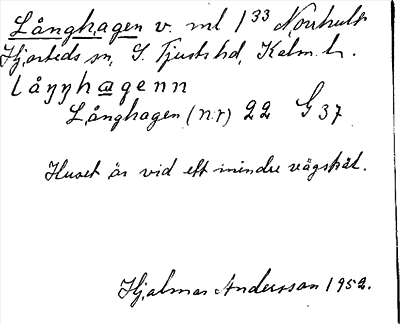 Långhagen v. ml 1³³ Norrhult
Hjorteds sn, S. Tjusts hd, Kalm. l.
låŋŋhagenn
Långhagen (nr) 22 G 37
Huset är vid ett mindre vägskäl.
Hjalmar Andersson 1952.